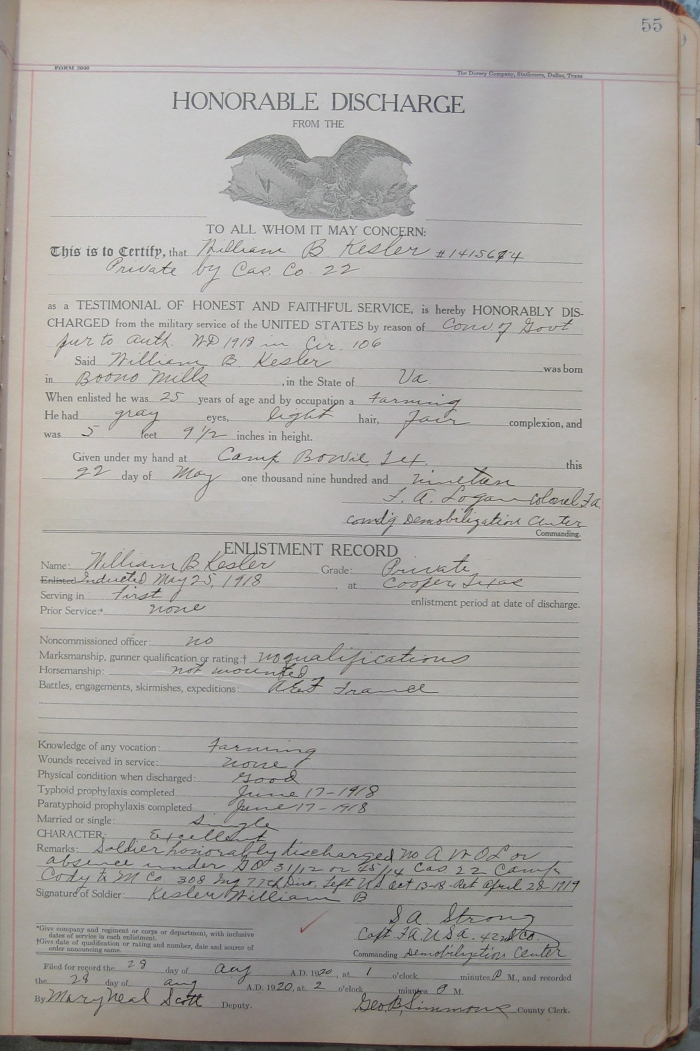 55
FORM 2000
The Dorsey Company, Stationers, Dallas, Texas
HONORABLE DISCHARGE
FROM THE
TO ALL WHOM IT MAY CONCERN:
This is to Certify, that William B Kesler
Private by Cas. Co. 22
as a TESTIMONIAL OF HONEST AND FAITHFUL SERVICE, is hereby HONORABLY DIS-
CHARGED from the military service of the UNITED STATES by reason of Conv of Govt
pur to auth. WD 1918 in Cir. 106
Said William B. Kesler was born
in Boono Mills, in the State of Va.
When enlisted he was 25 years of age and by occupation a Farming
He had gray eyes, light hair, Fair complexion, and
was 5 feet 9 1/2 inches in height.
Given under my hand at Camp Bowie, Tex. this
22 day of May one thousand nine hundred and nineteen
F. A. Logan Colonel Fa
comdg Demobilization Center
Commanding.
ENLISTMENT RECORD
Name: William B. Kesler Grade: Private
Enlisted Inducted May 25, 1918, at Cooper, Texas
Serving in First enlistment period at date of discharge.
Prior Service:* none
Noncommissioned officer: no
Marksmanship, gunner qualification or rating † no qualifications
Horsemanship: not mounted
Battles, engagements, skirmishes, expeditions: France
Knowledge of any vocation: Farming
Wounds received in service: none
Physical condition when discharged: Good
Typhoid prophylaxis completed June 17-1918
Paratyphoid prophylaxis completed June 17-1918
Married or single: Single
CHARACTER: Excellent
Remarks: Soldier honorably discharged no A W O L or
absence under GO 31/12 or 45/14 Cas 22 Camp
Cody to M Co. 308 Inf 77th Div. Left US Oct 13-18-Ret April 28-1919
Signature of Soldier: Kesler William B
S A Strong
Capt FA USA. 42nd Co.
Commanding Demobilization Center
*Give company and regiment or corps or department, with inclusive
dates of service in each enlistment.
†Give date of qualification or rating and number, date and source of
order announcing same.
Filed for record the 28 day of Aug A.D. 1920, at 1 o'clock minutes P M., and recorded
the 28 day of aug A.D. 1920, at 2 o'clock minutes P M.
By Mary Neal Scott Deputy. Geo B. Simmons County Clerk.